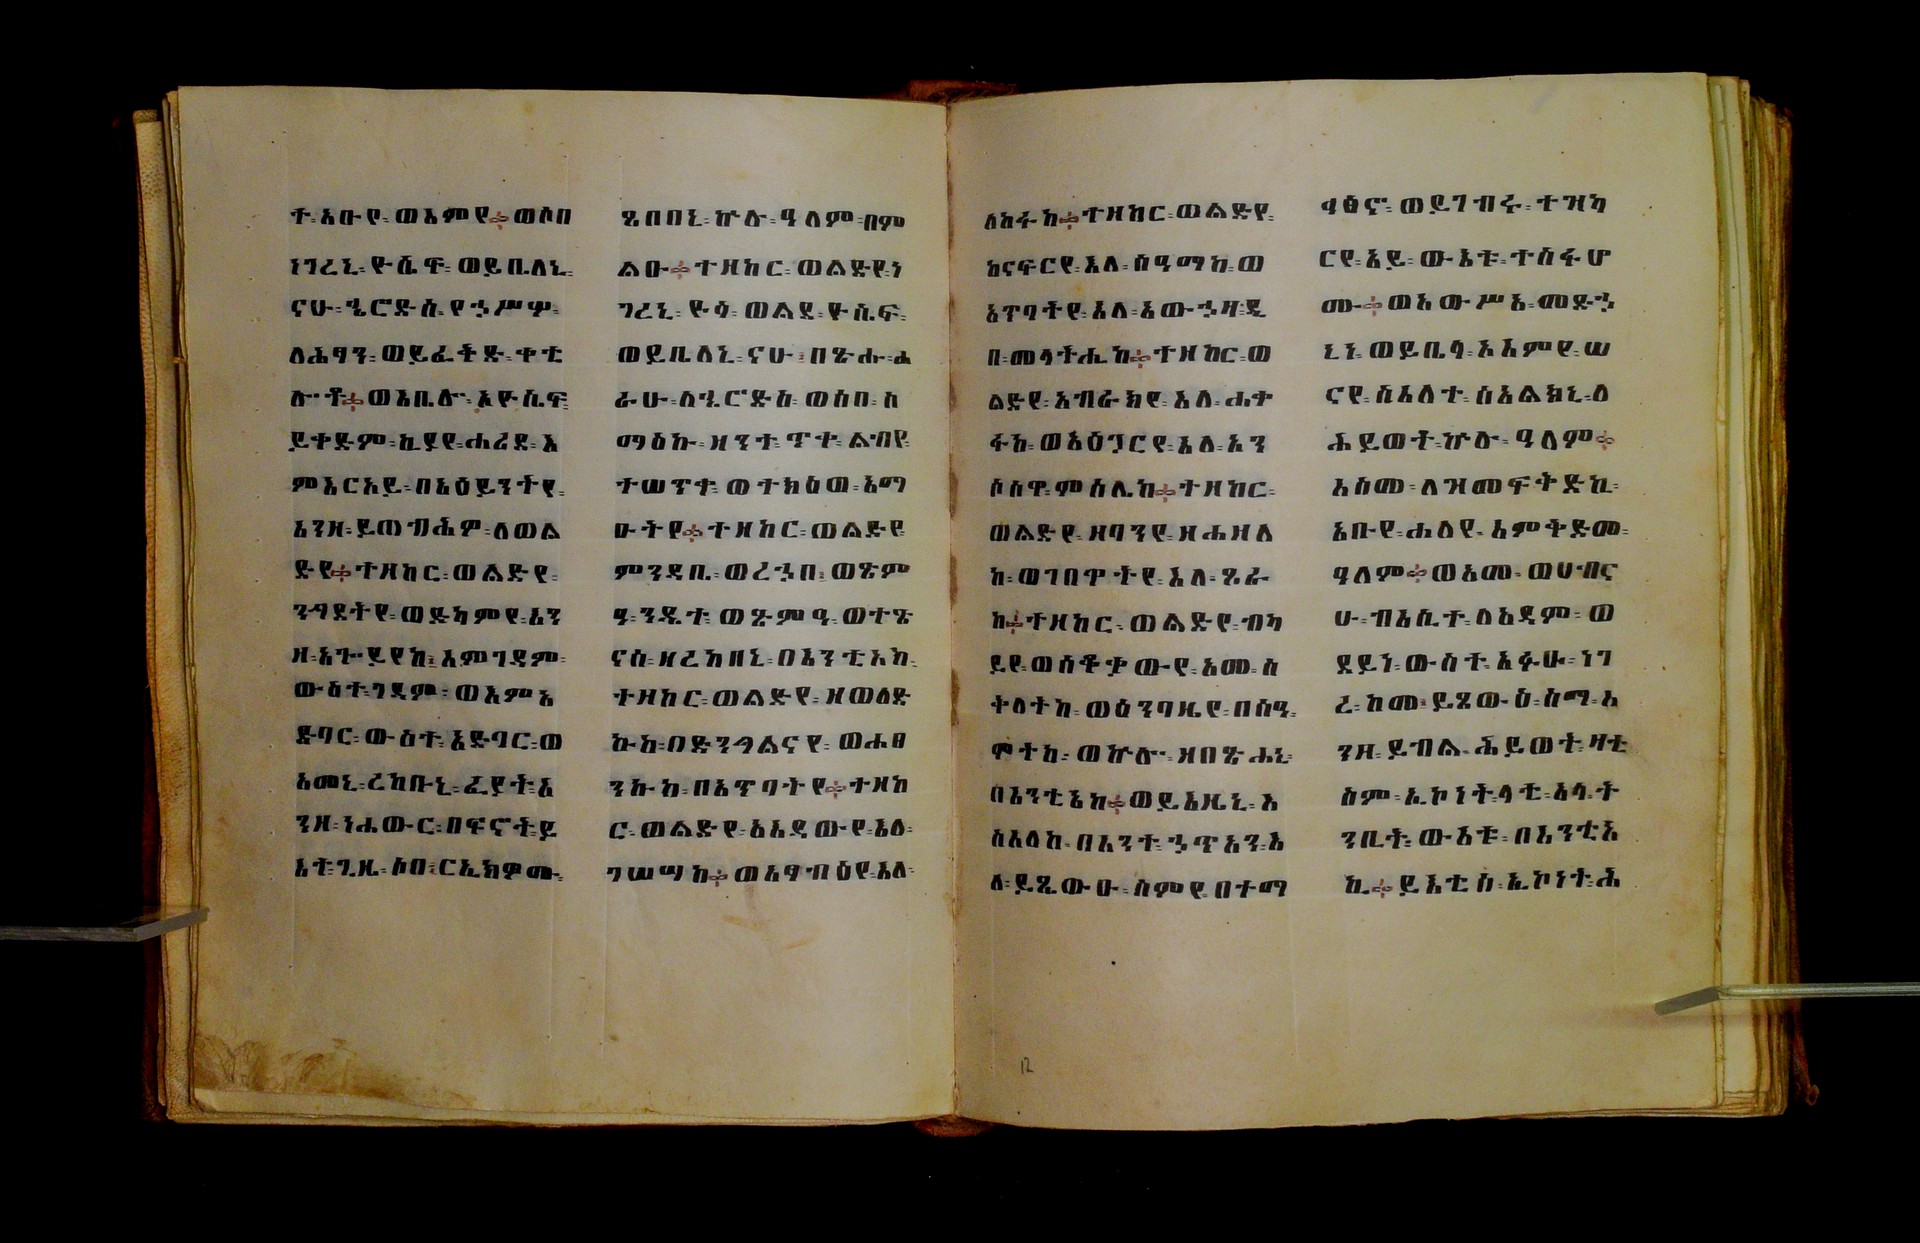 ት፡ አቡየ፡ ወእምየ፨ ወሶበ
ነገረኒ፡ ዮሴፍ፡ ወይቤለኒ፡
ናሁ፡ ሄሮድስ፡ የኃሥሦ፡
ለሕፃን፡ ወይፈትድ፡ ቀቲ
ሎቶ፨ ወእቤሎ፡ አዮሴፍ፡
ይቀድም፡ ኪያየ፡ ሐሪደ፡ እ
ምእርአይ፡ በአዕይንትየ፡
እንዘ፡ ይጠብሕዎ፡ ለወል
ድየ፨ ተዘከር፡ ወልድየ፡
ንግደትየ፡ ወድካምየ፡ እን
ዘ፡ እጐይይ፡ እምገዳም፡
ውስተ፡ ገዳም፡ ወእምአ
ድባር፡ ውስተ፡ አድባር፡ ወ
አመኒ፡ ረከቡኒ፡ ፈያት፡ እ
ንዘ፡ ነሐውር፡ በፍኖት፡ ይ
እተ፡ ጊዜ፡ ሶበ፡ ርኢክዎሙ፡
ጼበበኒ፡ ኵሉ፡ ዓለም፡ በም
ልዑ፨ ተዘከር፡ ወልድየ፡ ነ
ገረኒ፡ ዮሳ፡ ወልደ፡ ዮሴፍ፡
ወይቤለኒ፡ ናሁ፡ በጽሑ፡ ሐ
ራሁ፡ ለሄሮድስ፡ ወሶበ፡ ሰ
ማዕኩ፡ ዘንተ፡ ጥቀ፡ ልብየ፡
ተሠጥቀ፡ ወተክዕወ፡ አማ
ዑትየ፨ ተዘከር፡ ወልድየ፡
ምንዳቤ፡ ወረኃበ፡ ወጽም
ዓ፡ ንዴተ፡ ወጼምዓ፡ ወተጽ
ናሰ፡ ዘረከበኒ፡ በእንቲአከ፡
ተዘከር፡ ወልድየ፡ ዘወለድ
ኩከ፡ በድንግልናየ፡ ወሐፀ
ንኩከ፡ በአጥባትየ፨ ተዘከ
ር፡ ወልድየ፡ አእዳውየ፡ እለ፡
ገሠሣከ፨ ወአፃብዕየ፡ እለ፡
ለከፋከ፨ ተዘከር፡ ወልድየ፡
ከናፍርየ፡ እለ፡ ሰዓማከ፡ ወ
አጥባትየ፡ እለ፡ አውኃዛ፡ ዲ
በ፡ መላትሒከ፨ ተዘከር፡ ወ
ልድየ፡ አብራክየ፡ እለ፡ ሐቀ
ፋከ፡ ወአዕጋርየ፡ እለ፡ አን
ሶሰዋ፡ ምስሌከ፨ ተዘከር፡
ወልድየ፡ ዘባንየ፡ ዘሐዘለ
ከ፡ ወገበዋትየ፡ እለ፡ ጾራ
ከ፨ ተዘከር፡ ወልድየ፡ ብካ
ይየ፡ ወሰቆቃውየ፡ አመ፡ ሰ
ቀለተከ፡ ወዕንባዜየ፡ በሰዓ፡
ሞትከ፡ ወኵሎ፡ ዘበጽሐኒ፡
በእንቲአከ፨ ወይእዜኒ፡ እ
ስእለከ፡ በእንተ፡ ኃጥአን፡ እ
ለ፡ ይጼውዑ፡ ስምየ፡ በተማ
ኅፅኖ፡ ወይገብሩ፡ ተዝካ
ርየ፡ አይ፡ ውእቱ፡ ተስፋሆ
ሙ፨ ወአውሥአ፡ መድኃ
ኒነ፡ ወይቤላ፡ አእምየ፡ ሠ
ናየ፡ ስእለተ፡ ሰአልክኒ፡ ለ
ሕይወተ፡ ኵሉ፡ ዓለም፨
እስመ፡ ለዝመፍቅድኪ፡
አቡየ፡ ሐለየ፡ እምቅድመ፡
ዓለም፨ ወአመ፡ ወሀብና
ሁ፡ ብእሲተ፡ ለአዳም፡ ወ
ደይነ፡ ውስተ፡ አፉሁ፡ ነገ
ረ፡ ከመ፡ ይጼውዕ፡ ስማ፡ እ
ንዘ፡ ይብል፡ ሕይወት፡ ዛቲ
ስም፡ ኢኮነት፡ ላቲ፡ አላ፡ ት
ንቢት፡ ውእቱ፡ በእንቲአ
ኪ፨ ይእቲሰ፡ ኢኮነት፡ ሕ
12